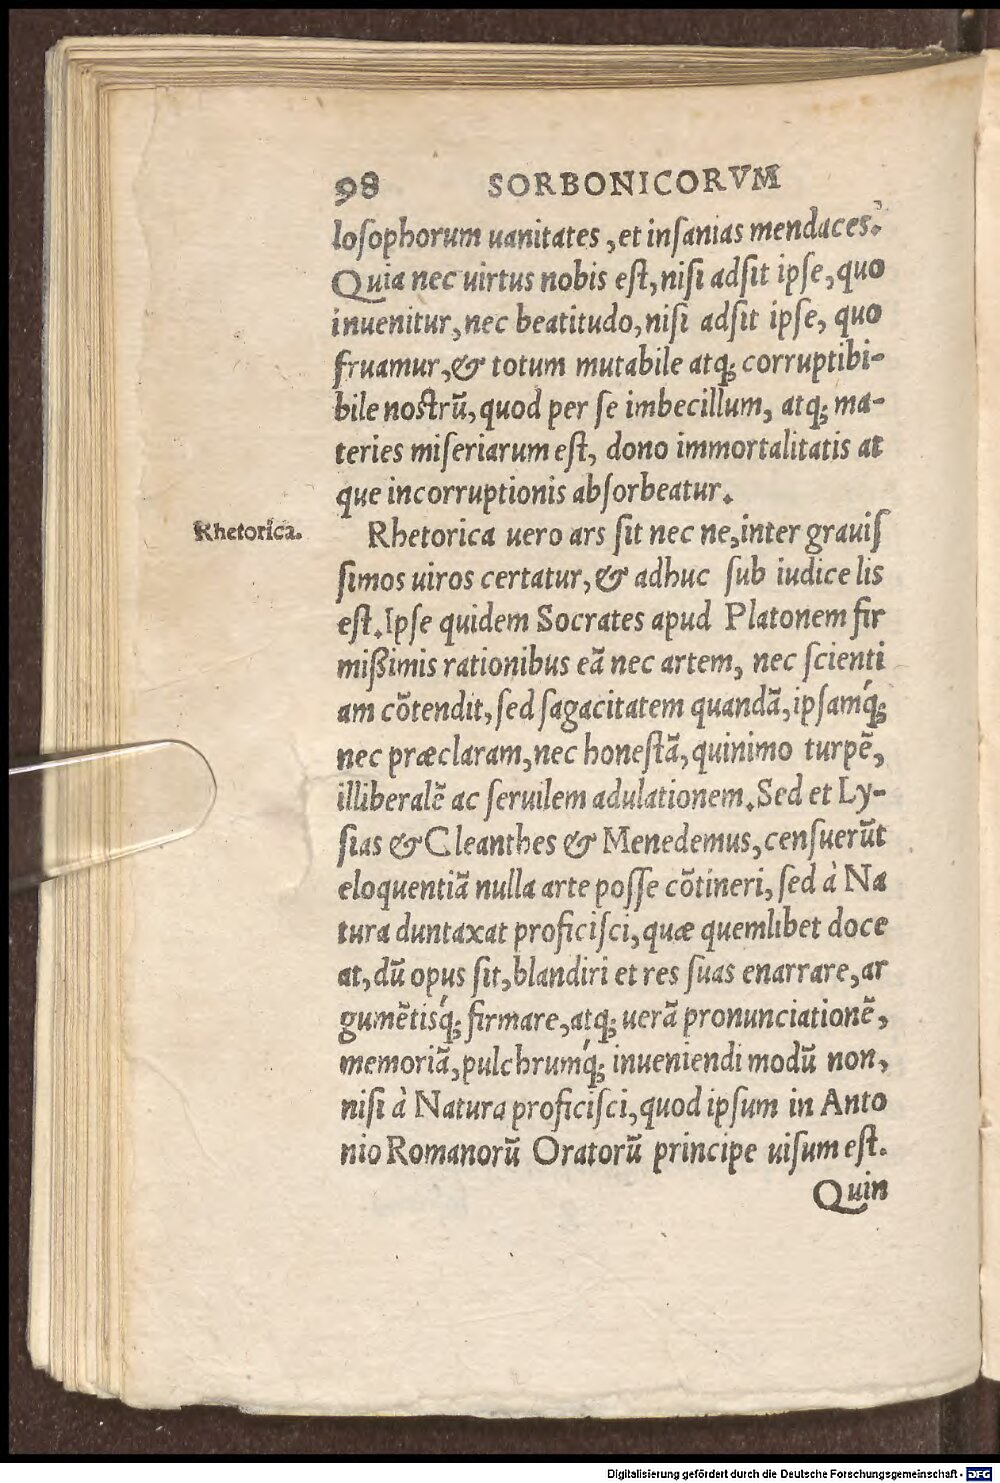 98 SORBONICORVM
loſophorum uanitates, et inſanias mendaces?
Quia nec uirtus nobis eſt, niſi adſit ipſe, quo
inuenitur, nec beatitudo, niſi adſit ipſe, quo
fruamur, & totum mutabile atq; corruptibi-
bile noſtrū, quod per ſe imbecillum, atq; ma-
teries miſeriarum eſt, dono immortalitatis at
que incorruptionis abſorbeatur.
Rhetorica.
Rhetorica uero ars ſit nec ne, inter grauiſ
ſimos uiros certatur, & adhuc ſub iudice lis
eſt. Ipſe quidem Socrates apud Platonem fir
mißimis rationibus eā nec artem, nec ſcienti
am cōtendit, ſed ſagacitatem quandā, ipſamq́;
nec præclaram, nec honeſtā, quinimo turpē,
illiberalē ac ſeruilem adulationem. Sed et Ly-
ſias & Cleanthes & Menedemus, cenſuerūt
eloquentiā nulla arte poſſe cōtineri, ſed à Na
tura duntaxat proficiſci, quæ quemlibet doce
at, dū opus ſit, blandiri et res ſuas enarrare, ar
gumētisq́; firmare, atq; uerā pronunciationē,
memoriā, pulchrumq́; inueniendi modū non,
niſi à Natura proficiſci, quod ipſum in Anto
nio Romanorū Oratorū principe uiſum eſt.
Quin
Digitalisierung gefördert durch die Deutsche Forschungsgemeinschaft - DFG